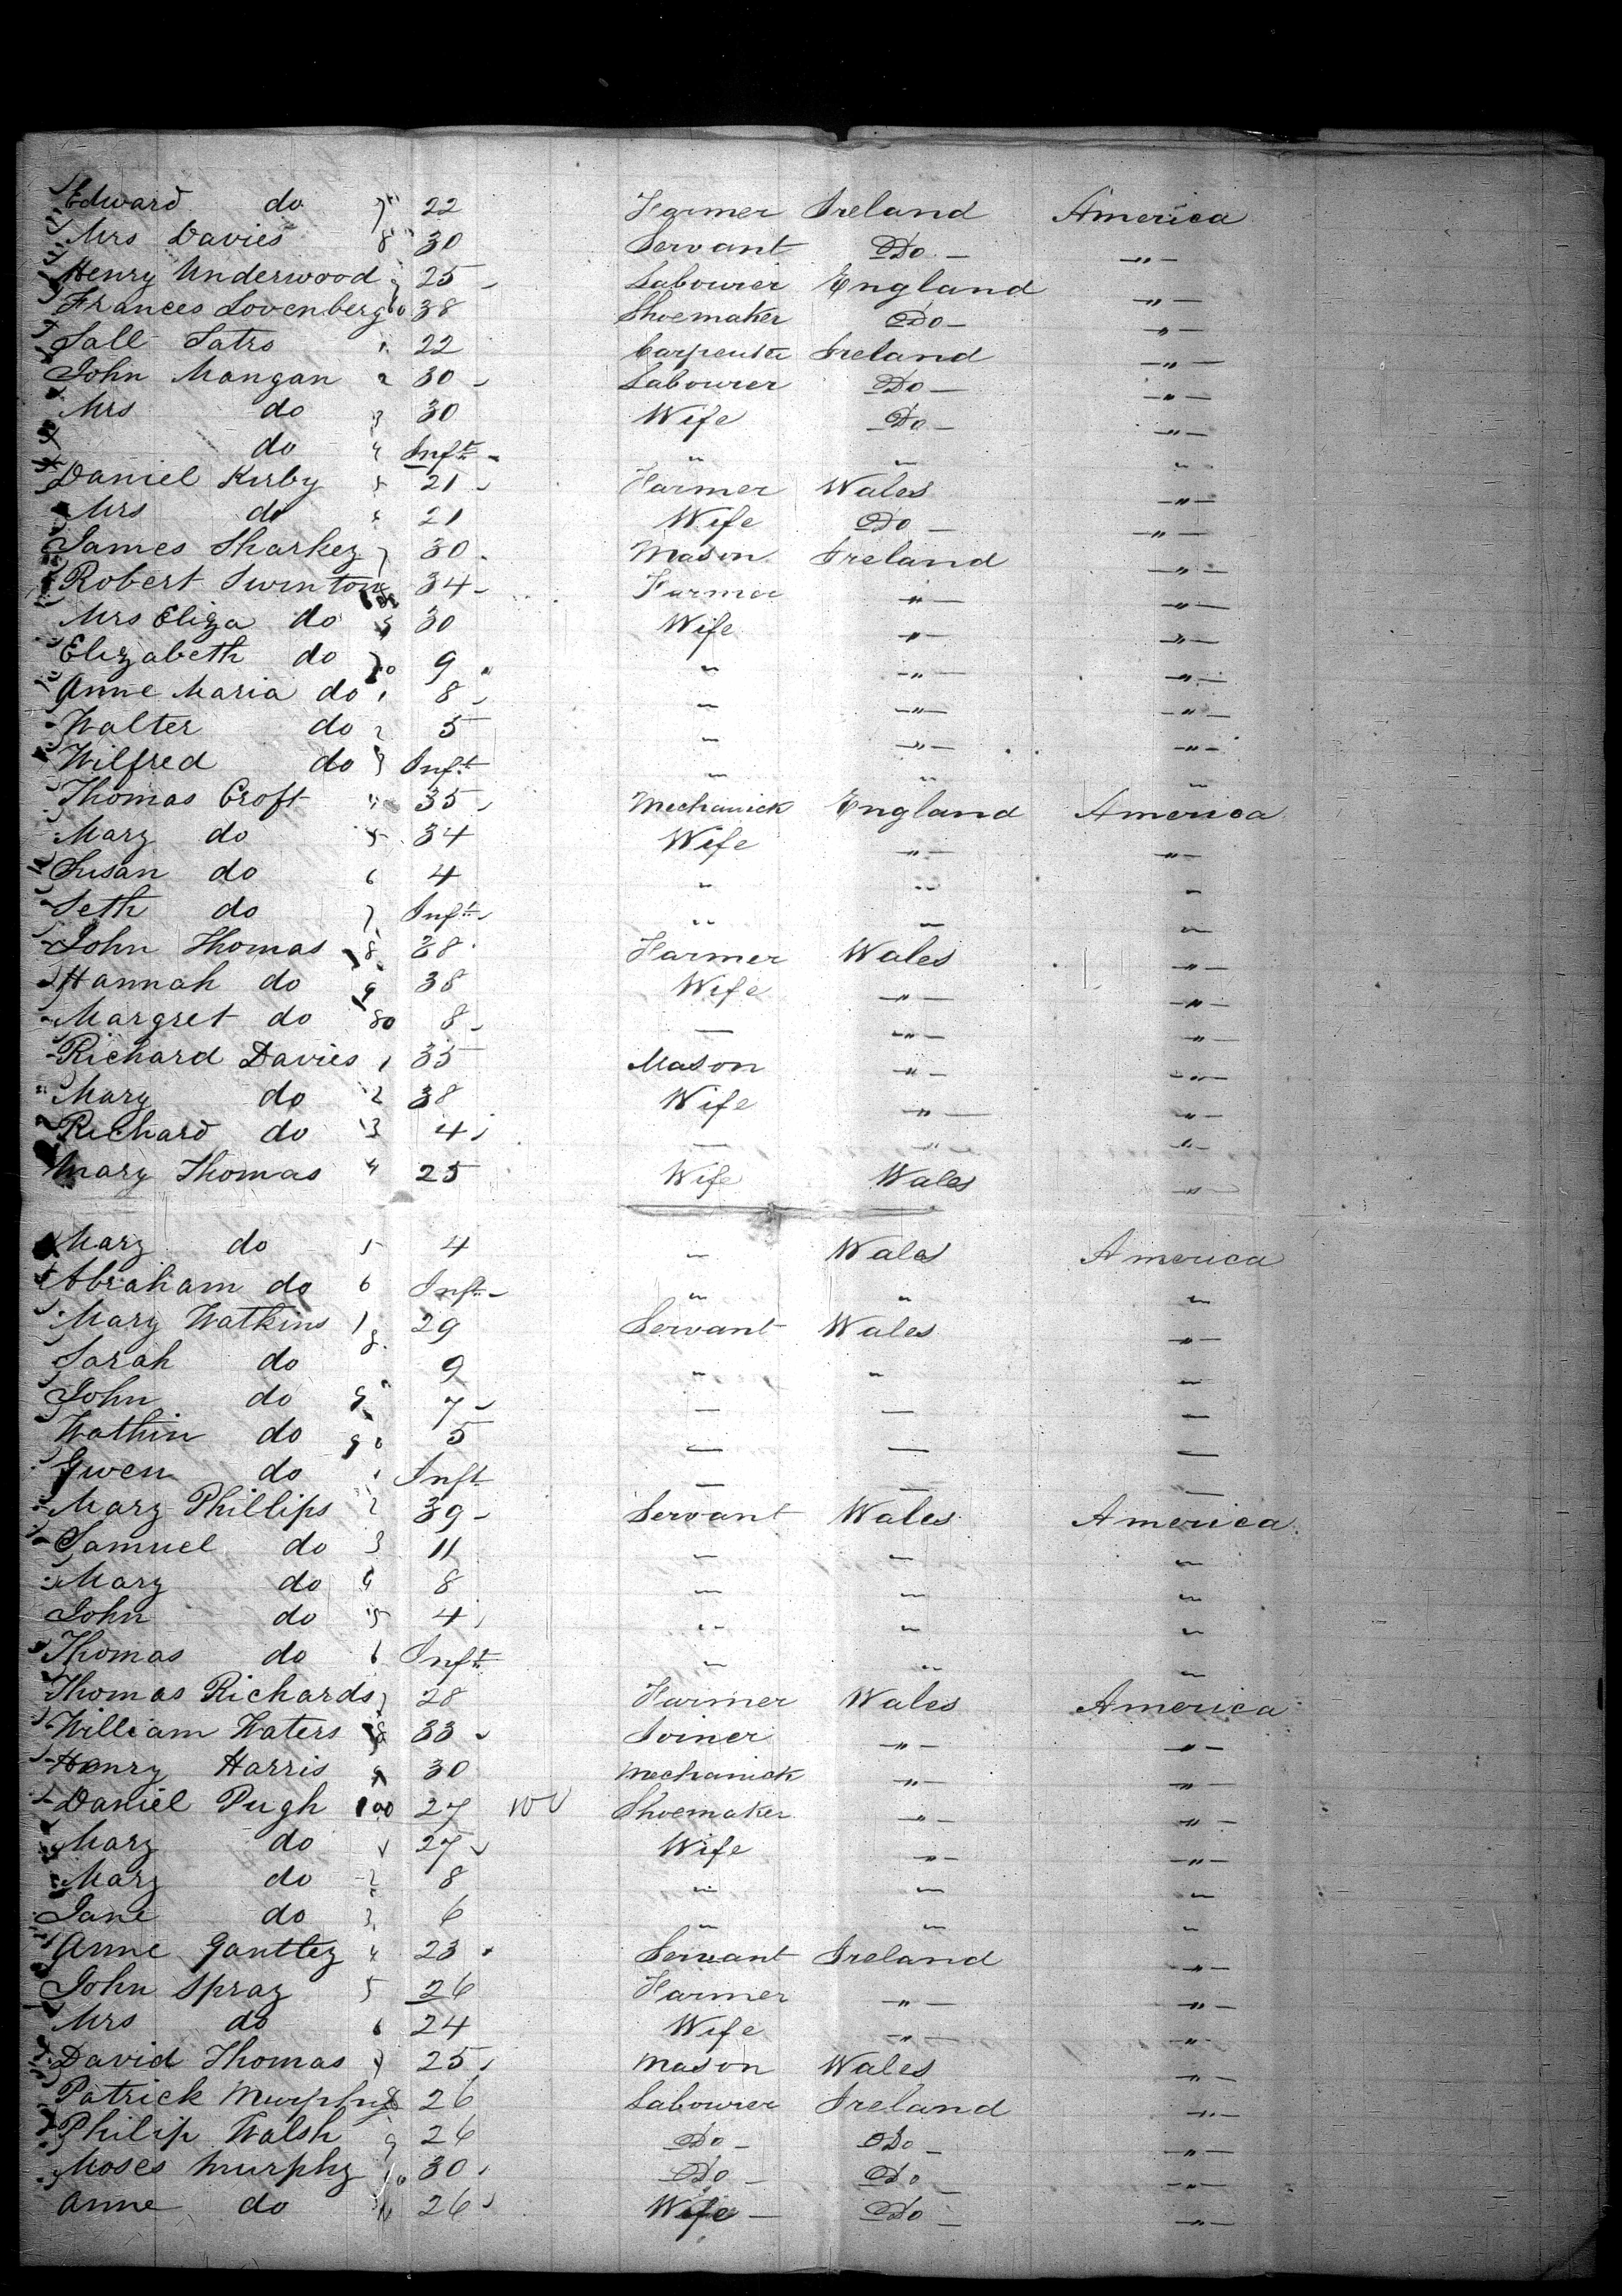 Edward do 7 22 Farmer Ireland America
Mrs Davies 8 30 Servant Do — „ —
Henry Underwood 9 25 Labourer England „ —
Frances Lovenberg 60 38 Shoemaker Do — „ —
Sall Satro 1 22 Carpenter Ireland „ —
John Mangan 2 30 Labourer Do — „ —
Mrs do 3 30 Wife Do — „ —
do 4 Inft „ „ „
Daniel Kirby 5 21 Farmer Wales „ —
Mrs do 6 21 Wife Do — „ —
James Sharkey 7 30 Mason Ireland „ —
Robert Swinton 34 Farmer „ — „ —
Mrs Eliza do 9 30 Wife „ — „ —
Elizabeth do 70 9 „ „ — „ —
Anne Maria do 1 8 „ „ — „ —
Walter do 2 5 „ „ — „ —
Wilfred do 3 Inft „ „ „
Thomas Croft 4 35 Mechanick England America
Mary do 5 34 Wife „ — „ —
Susan do 6 4 „ „ „
Seth do 7 Inft „ „ „
John Thomas 8 38 Farmer Wales „ —
Hannah do 9 38 Wife „ — „ —
Margret do 80 8 — „ — „ —
Richard Davies 1 35 Mason „ — „ —
Mary do 2 38 Wife „ — „ —
Richard do 3 4 — „ — „ —
Mary Thomas 4 25 Wife Wales „ —
Mary do 5 4 „ Wales America
Abraham do 6 Inft „ „ „
Mary Watkins 7 29 Servant Wales „ —
Sarah do 8 9 „ „ „
John do 9 7 — — —
Wathin do 90 5 — — —
Gwen do 1 Inft — — —
Mary Phillips 2 39 Servant Wales America
Samuel do 3 11 „ „ „
Mary do 4 8 „ „ „
John do 5 4 „ „ „
Thomas do 6 Inft „ „ „
Thomas Richards 7 28 Farmer Wales America
William Waters 8 33 Joiner „ — „ —
Henry Harris 9 30 Mechanick „ — „ —
Daniel Pugh 100 27 Shoemaker „ — „ —
Mary do 1 27 Wife „ — „ —
Mary do 2 8 „ „ „
Jane do 3 6 „ „ „
Anne Gantley 4 23 Servant Ireland „ —
John Spray 5 26 Farmer „ — „ —
Mrs do 6 24 Wife „ — „ —
David Thomas 7 25 Mason Wales „ —
Patrick Murphy 8 26 Labourer Ireland „ —
Philip Walsh 9 26 Do — Do — „ —
Moses Murphy 10 30 Do — Do — „ —
Anne do 11 26 Wife — Do — „ —